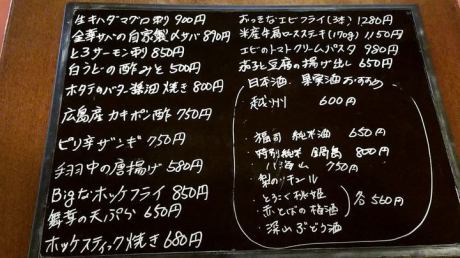 生キハダマグロ刺 900円
金華サバの自家製〆サバ 890円
とろサーモン刺 850円
白うどの酢みそ 500円
ホタテのバター醤油焼き 800円
広島産カキポン酢 750円
ピリ辛ザンギ 750円
手羽中の唐揚げ 580円
Bigなホッケフライ 850円
舞茸の天ぷら 650円
ホッケスティック焼き 680円
おっきなエビフライ(3本) 1280円
米産牛肩ロースステーキ(170g) 1150円
エビのトマトクリームパスタ 980円
ホタテと豆腐の揚げ出し 650円
日本酒 果実酒 おすすめ
越州 600円
福司 純米酒 650円
・特別純米 鍋島 800円
・八海山 750円
・梨のリキュール
・とろこく桃姫
・赤とばの梅酒
・深山ぶどう酒
各560円